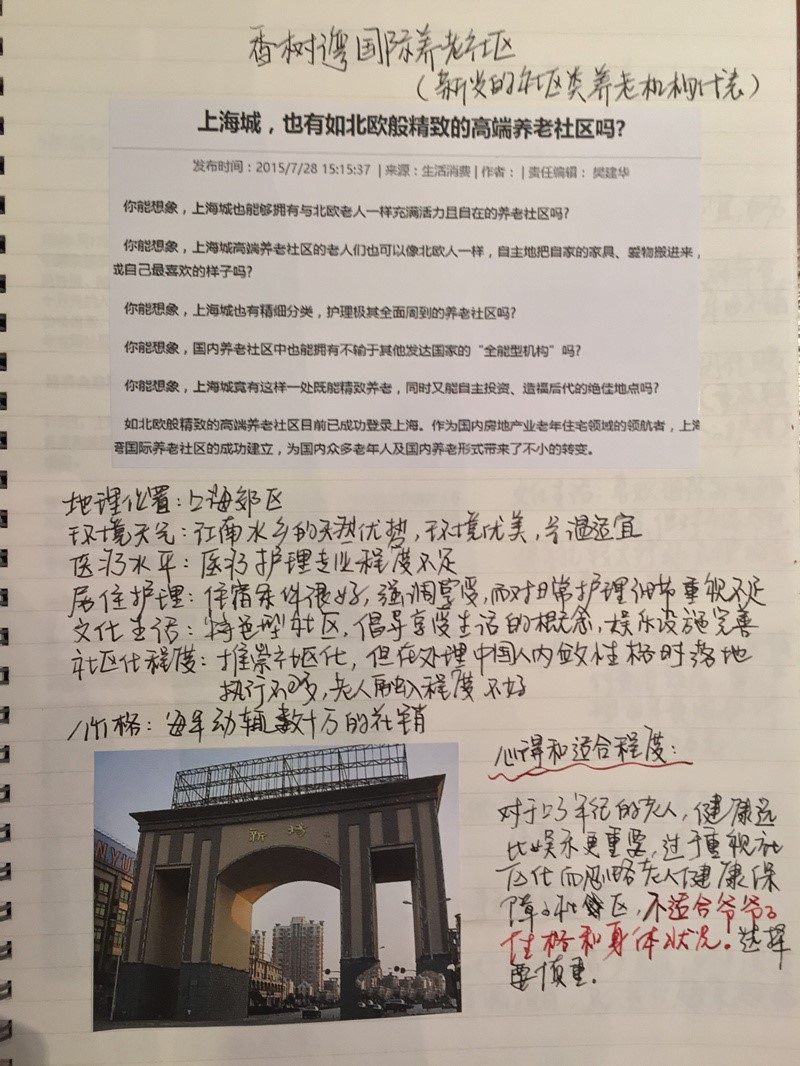 香树湾国际养老社区
（新兴的社区类养老机构代表）
上海城，也有如北欧般精致的高端养老社区吗?
发布时间：2015/7/28 15:15:37 | 来源：生活消费 | 作者： | 责任编辑： 樊建华
你能想象，上海城也能够拥有与北欧老人一样充满活力且自在的养老社区吗?
你能想象，上海城高端养老社区的老人们也可以像北欧人一样，自主地把自家的家具、爱物搬进来，
成自己最喜欢的样子吗?
你能想象，上海城也有精细分类，护理极其全面周到的养老社区吗?
你能想象，国内养老社区中也能拥有不输于其他发达国家的“全能型机构”吗?
你能想象，上海城竟有这样一处既能精致养老，同时又能自主投资、造福后代的绝佳地点吗?
如北欧般精致的高端养老社区目前已成功登录上海。作为国内房地产业老年住宅领域的领航者，上海
湾国际养老社区的成功建立，为国内众多老年人及国内养老形式带来了不小的转变。
地理位置：上海郊区
环境天气：江南水乡的天然优势，环境优美，气温适宜
医疗水平：医疗护理专业程度不足
居住护理：住宿条件很好，强调享受，而对日常护理细节重视不足
文化生活：特色型社区，倡导享受生活的概念，娱乐设施完善
社区化程度：推崇社区化，但在处理中国人内敛性格时落地
执行不够，老人融入程度不好
价格：每年动辄数十万的花销
新场
NYU
心得和适合程度：
对于上了年纪的老人，健康远
比娱乐更重要，过于重视社
区化而忽略老人健康保
障的社区，不适合爷爷的
性格和身体状况。选择
要慎重.